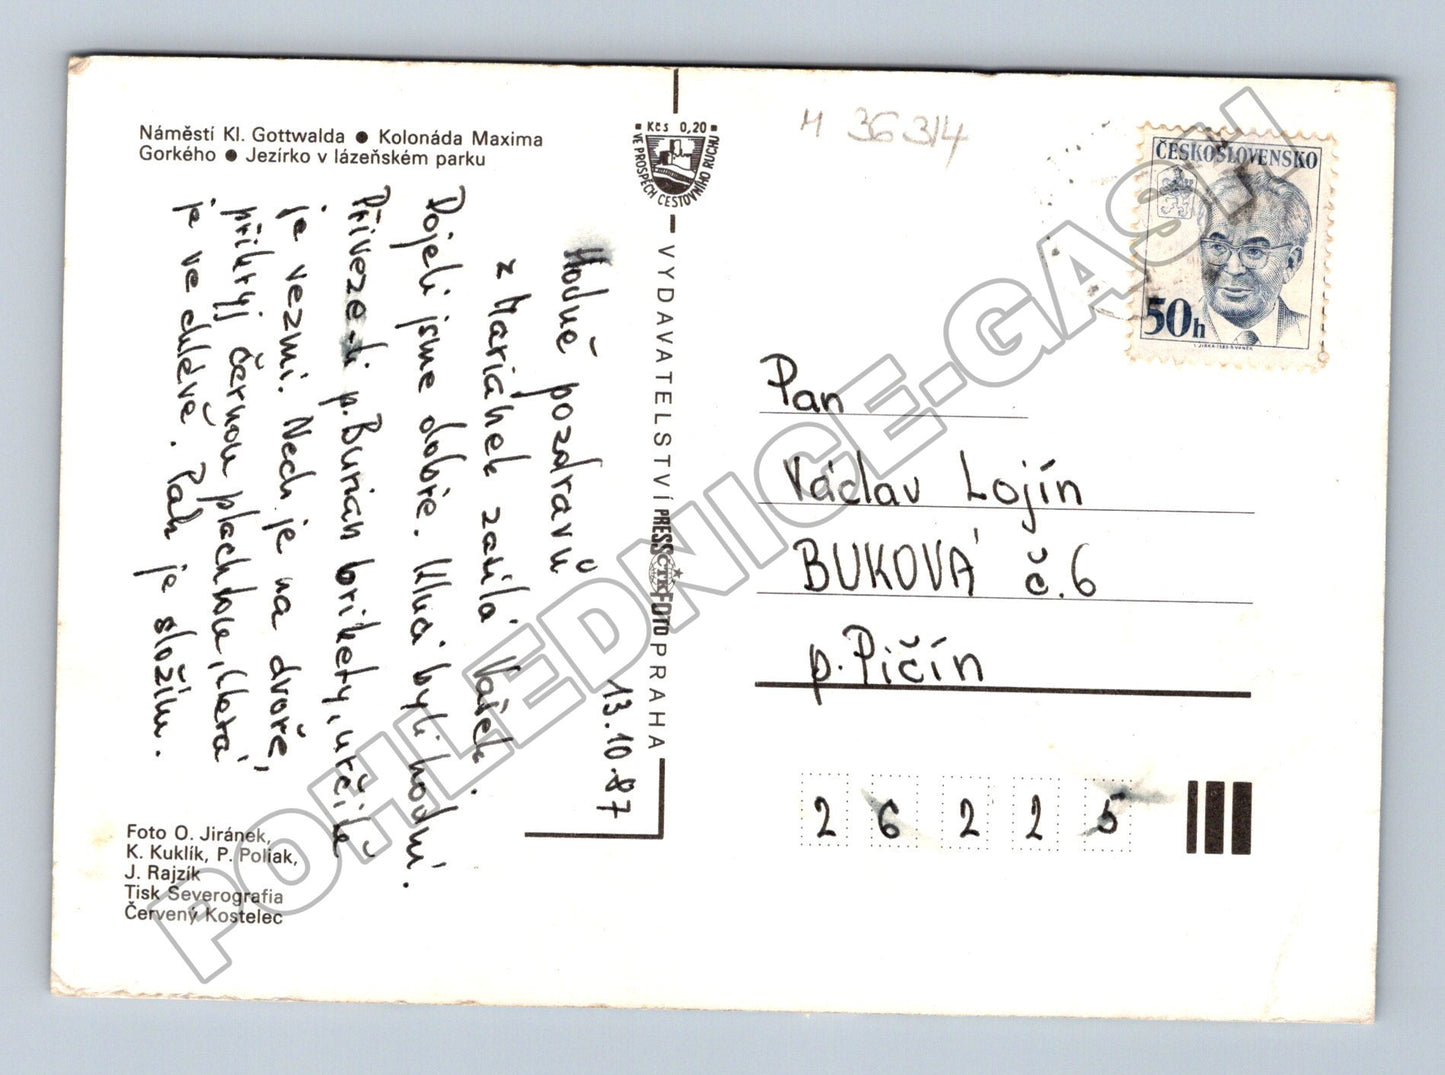 Náměstí Kl. Gottwalda ● Kolonáda Maxima
Gorkého ● Jezírko v lázeňském parku
Kčs 0,20
VE PROSPĚCH CESTOVNÍHO RUCHU
VYDAVATELSTVÍ PRESSFOTO PRAHA
ČTK
13.10.87
Hodně pozdravů
z Mariánek zasílá Vašek.
Dojeli jsme dobře. Kluci byli hodní.
Přiveze-li p. Burian brikety, určitě
je vezmi. Nech je na dvoře,
přikryj černou plachtou, která
je ve chlévě. Pak je složím.
Foto O. Jiránek,
K. Kuklík, P. Poliak,
J. Rajzík
Tisk Severografia
Červený Kostelec
M 36314
ČESKOSLOVENSKO
50h
Pan
Václav Lojín
BUKOVÁ č.6
p. Pičín
26225
POHLEDNICE-GASH